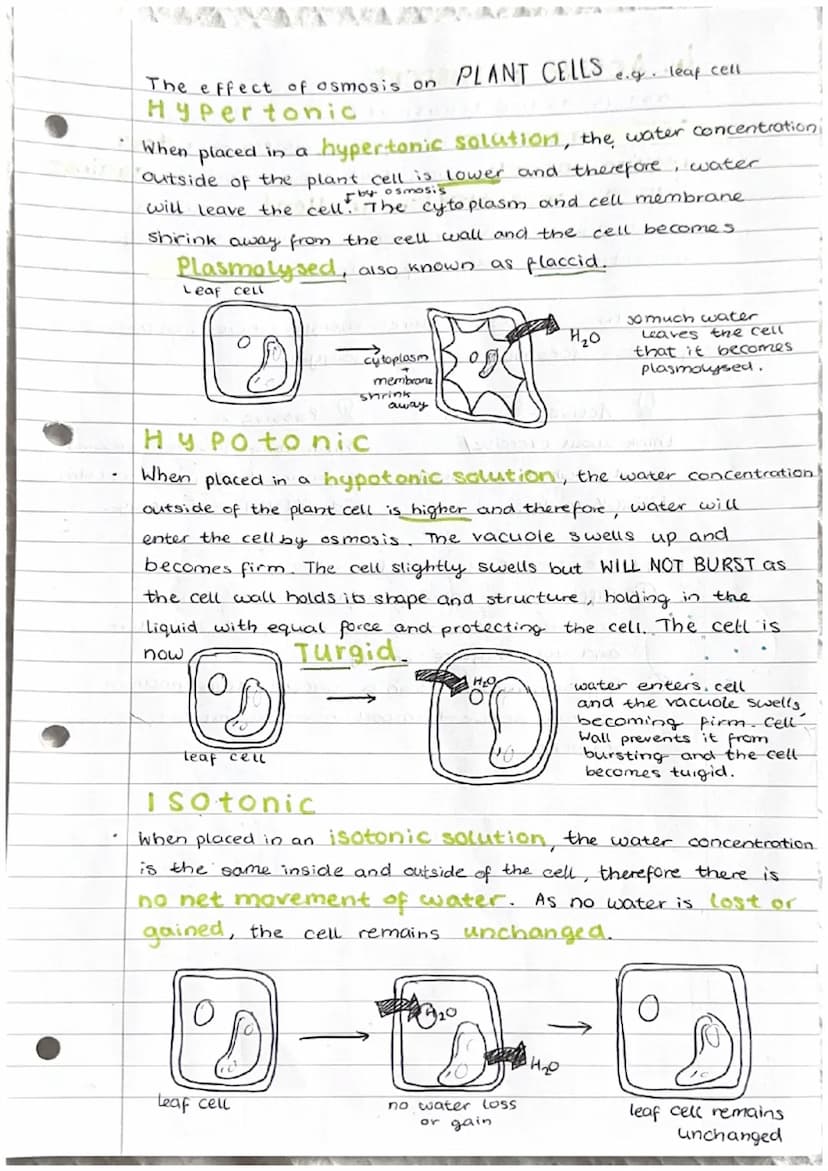 The effect of osmosis on PLANT CELLS e.g. leaf cell
Hypertonic
· When placed in a hypertonic solution, the water concentration
outside of the plant cell is lower and therefore, water
by osmosis
will leave the cell. The cytoplasm and cell membrane
shrink away from the cell wall and the cell becomes
Plasmolysed, also known as flaccid.
Leaf cell
cytoplasm
+
membrane
shrink
away
H₂O
so much water
leaves the cell
that it becomes
plasmolysed.
Hypotonic
· When placed in a hypotonic solution, the water concentration
outside of the plant cell is higher and therefore, water will
enter the cell by osmosis. The vacuole swells up and
becomes firm. The cell slightly swells but WILL NOT BURST as
the cell wall holds its shape and structure, holding in the
liquid with equal force and protecting the cell. The cell is
now Turgid.
leaf cell
H₂O
water enters cell
and the vacuole swells,
becoming firm. Cell
Wall prevents it from
bursting and the cell
becomes turgid.
Isotonic
· When placed in an isotonic solution, the water concentration
is the same inside and outside of the cell, therefore there is
no net movement of water. As no water is lost or
gained, the cell remains unchanged.
leaf cell
H₂O
H₂O
no water loss
or gain
leaf cell remains
unchanged